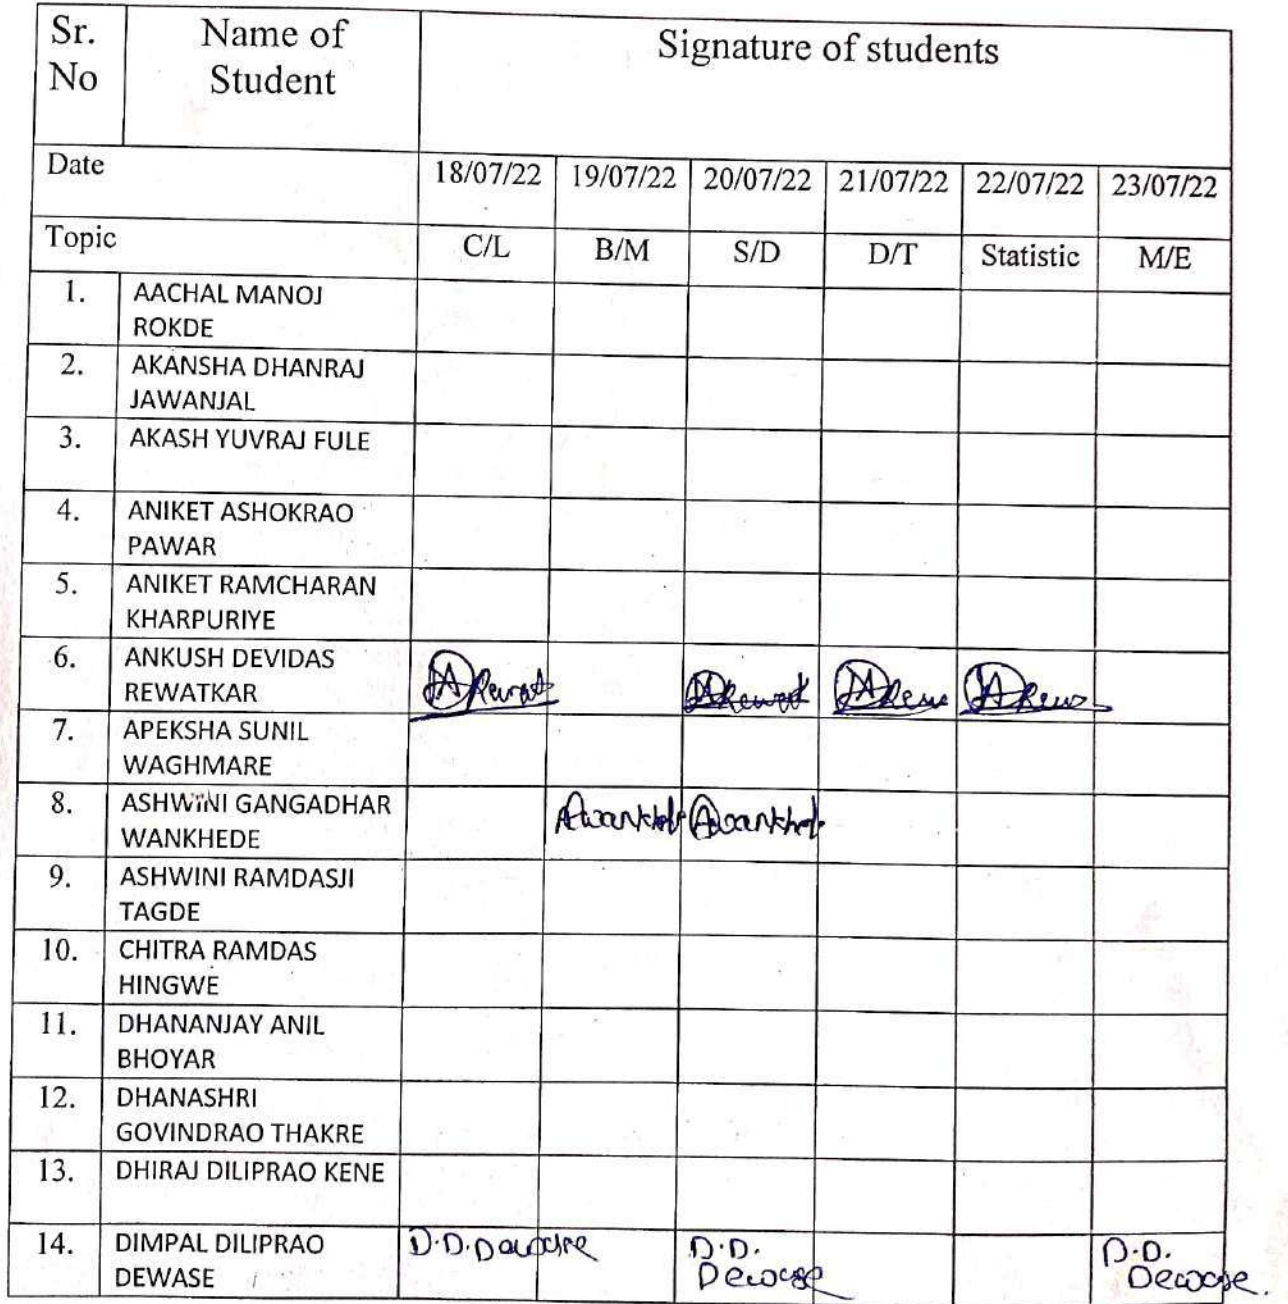 Sr. No Name of Student Signature of students
Date 18/07/22 19/07/22 20/07/22 21/07/22 22/07/22 23/07/22
Topic C/L B/M S/D D/T Statistic M/E
1. AACHAL MANOJ
ROKDE
2. AKANSHA DHANRAJ
JAWANJAL
3. AKASH YUVRAJ FULE
4. ANIKET ASHOKRAO
PAWAR
5. ANIKET RAMCHARAN
KHARPURIYE
6. ANKUSH DEVIDAS
REWATKAR
7. APEKSHA SUNIL
WAGHMARE
8. ASHWINI GANGADHAR
WANKHEDE
9. ASHWINI RAMDASJI
TAGDE
10. CHITRA RAMDAS
HINGWE
11. DHANANJAY ANIL
BHOYAR
12. DHANASHRI
GOVINDRAO THAKRE
13. DHIRAJ DILIPRAO KENE
14. DIMPAL DILIPRAO D.D. D.D. D.D.
DEWASE Dewase Dewase.